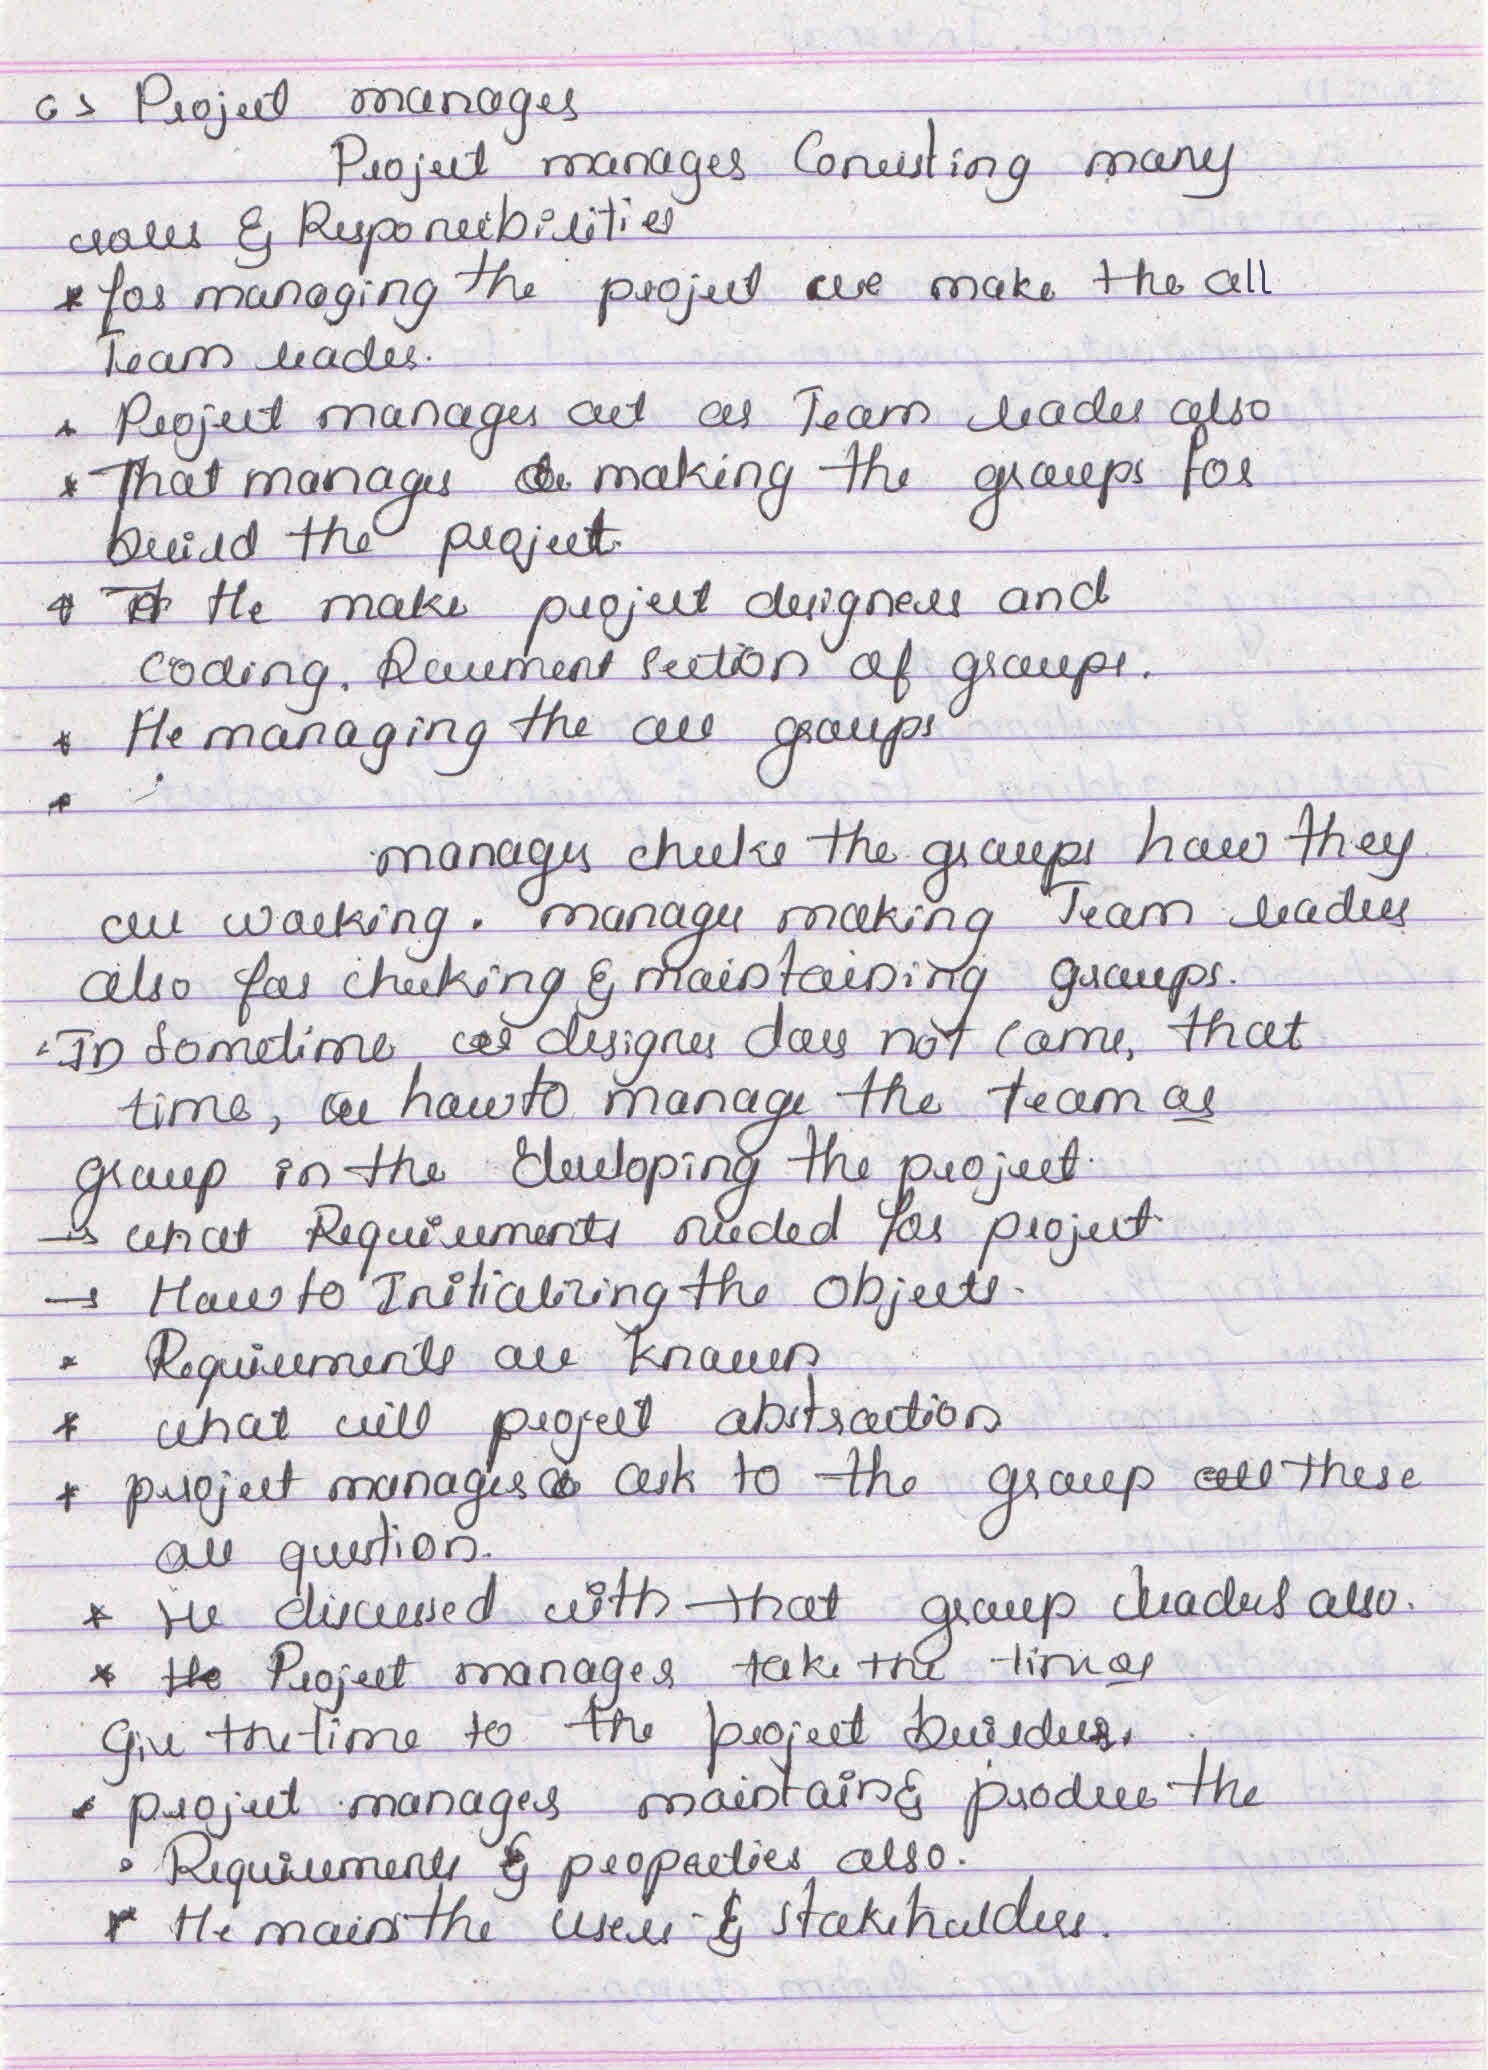 6> Project manager
Project manager Consisting many
roles & Responsibilities
* for managing the project we make the all
Team leader.
* Project manager act as Team leader also
* That manager making the groups for
build the project.
* He make project designers and
coding. Document section of groups.
* He managing the all groups
*
manager checks the groups how they
are working. manager making Team leader
also for checking & maintaining groups.
* In Sometime designer does not come, that
time, how to manage the team or
group in the developing the project.
→ what Requirements needed for project.
→ How to Initializing the objects.
* Requirements are known
* what will project abstraction
* project manager ask to the group these
all question.
* He discussed with that group leaders also.
* He Project manager take the time or
Give the time to the project builders.
* project manager maintain & produce the
• Requirements & properties also.
* He main the users & stakeholders.